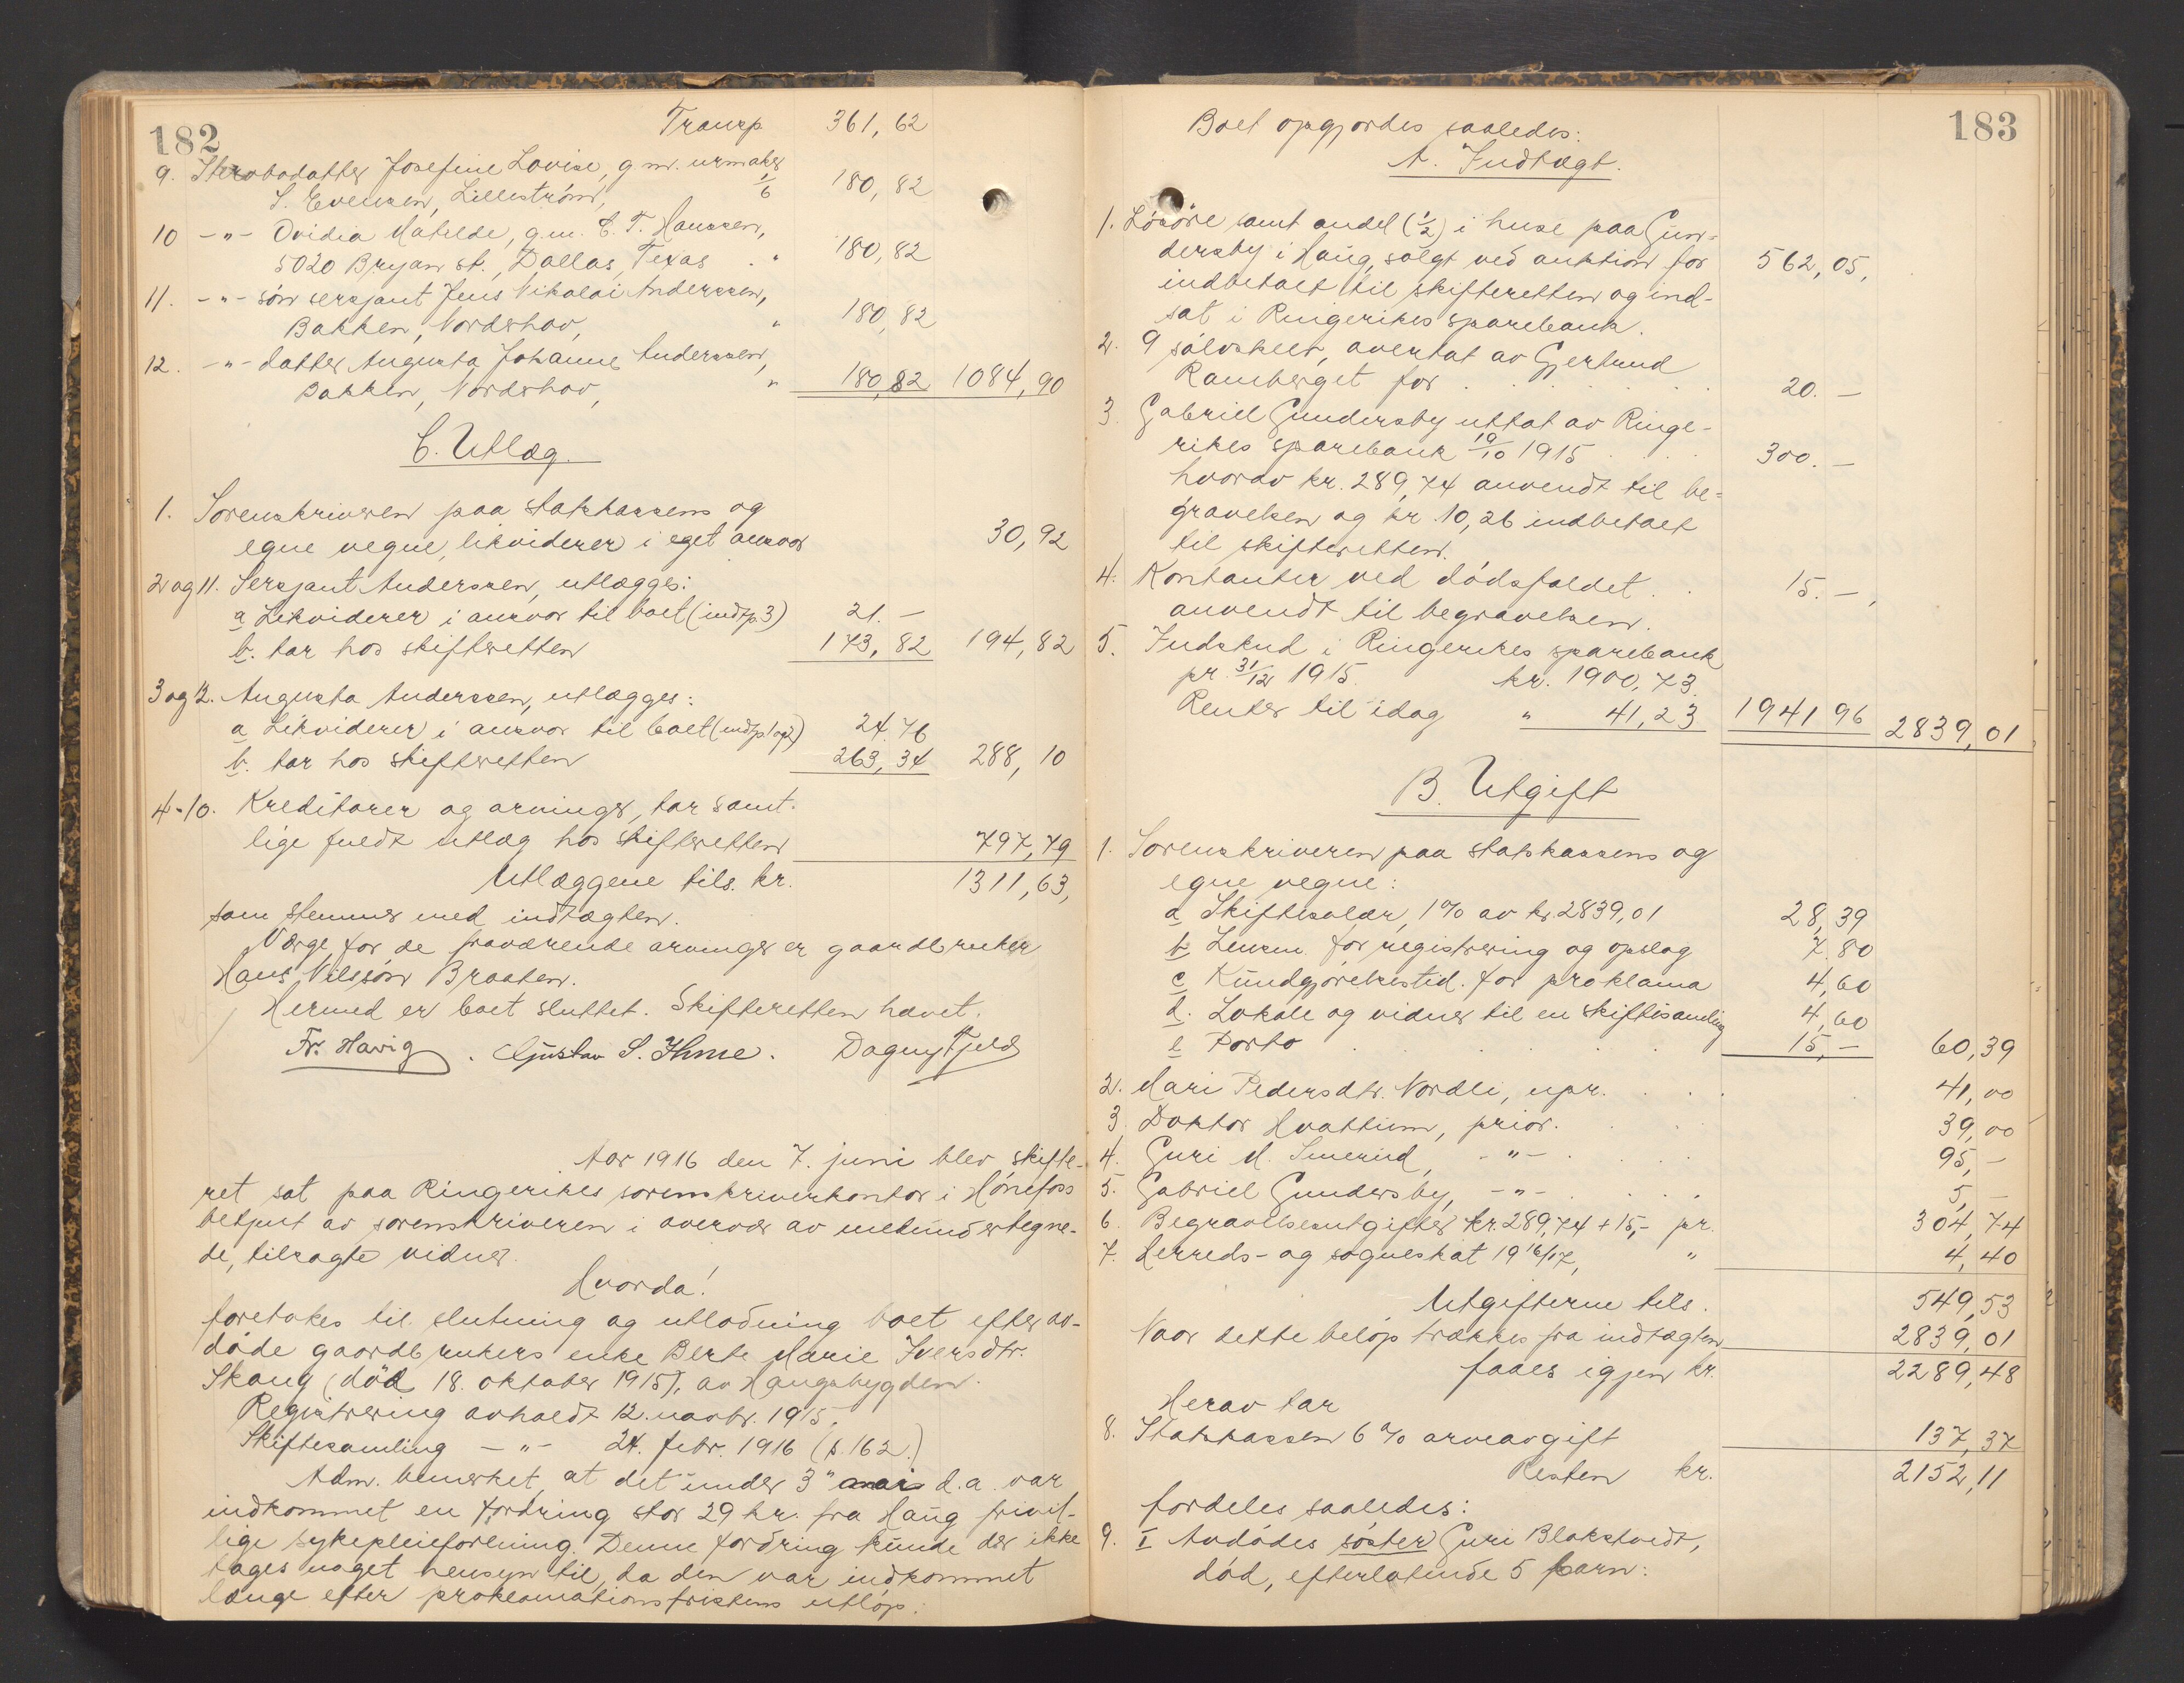 182
Transp. 361,62
9. Sterbodatter Josefine Lovise, g.m. urmaker
S. Evensen, Lillestrøm, 1/6 180,82
10 -"- Ovidia Matilde, g.m. C. T. Hanssen,
5020 Bryan st., Dallas, Texas . " 180,82
11. -"- søn sersjant Jens Nikolai Anderssen,
Bakken, Norderhov, " 180,82
12. -"- datter Augusta Johanne Anderssen,
Bakken, Norderhov, " 180,82 1084,90
C. Utlæg.
1. Sorenskriveren paa statskassens og
egne vegne, likviderer i eget ansvar 30,92
2 og 11. Sersjant Anderssen, utlægges:
a Likviderer i ansvar til boet (indtp. 3) 21.—
b. tar hos skifteretten 173,82 194,82
3 og 12. Augusta Anderssen, utlægges:
a Likviderer i ansvar til boet (indtp. 1 og 2) 24,76
b. tar hos skifteretten 263,34 288,10
4-10. Kreditorer og arvinger, tar samt-
lige fuldt utlæg hos skifteretten 797,79
Utlæggene tils. kr. 1311,63,
som stemmer med indtægten.
Verge for de fraværende arvinger er gaardbruker
Hans Nilssøn Braaten.
Hermed er boet sluttet. Skifteretten hævet.
Fr. Havig . Gustav S. Ihme. Dagny Fjeld
Aar 1916 den 7. juni blev skifte-
ret sat paa Ringerikes sorenskriverkontor i Hønefoss
betjent av sorenskriveren i overvær av medundertegne-
de, tilragte vidner.
Hvorda!
foretokes til slutning og utlodning boet efter av-
døde gaardbrukers enke Berte Marie Iversdtr.
Skaug (død 18. oktober 1915), av Haugsbygden.
Registrering avholdt 12. novbr. 1915.
Skiftesamling -"- 24. febr. 1916 (s. 162.)
Adm. bemerket, at det under 3" mai d.a. var
indkommet en fordring stor 29 kr. fra Haug frivil-
lige sykepleieforening. Denne fordring kunde der ikke
tages noget hensyn til, da den var indkommet
længe efter proklamationsfristens utløp.
183
Boet opgjordes saaledes:
A. Indtægt.
1. Løsøre samt andel (1/2) i huse paa Gun-
dersby i Haug, solgt ved auktion for 562,05,
indbetalt til skifteretten og ind-
sat i Ringerikes sparebank.
2. 9 sølvskeer, overtat av Gjertrud
Ramberget for . . . . . . 20.—
3. Gabriel Gundersby uttat av Ringe-
rikes sparebank 19/10 1915 . . . . 300.—
hvorav kr. 289,74 anvendt til be-
gravelsen og kr. 10,26 indbetalt
til skifteretten.
4. Kontanter ved dødsfaldet . . 15.—,
anvendt til begravelsen.
5. Indskud i Ringerikes sparebank
pr. 31/12 1915. kr. 1900,73.
Renter til idag " 41,23 1941 96 2839,01
B. Utgift
1. Sorenskriveren paa statskassens og
egne vegne:
a Skiftesalær, 1% av kr. 2839,01 28,39
b Lensm. for registrering og opslag 7.80
c Kundgjørelsestid. for proklama 4,60
d. Lokale og vidner til en skiftesamling 4,60
e Porto . . . . . . 15,— 60,39
2. Mari Pedersdtr. Nordli, upr. . . . . 41,00
3. Doktor Hvattum, prior. . . . 39,00
4. Guri M. Smerud, -"- . . . . 95,—
5. Gabriel Gundersby, -"- . . . . 5,—
6. Begravelsesutgifter kr. 289,74 + 15,- pr. 304,74
7. Herreds- og sogneskat 1916/17, " 4,40
Utgifterne tils. 549,53
Naar dette beløp trækkes fra indtægten 2839,01
faaes igjen kr. 2289,48
Herav tar
8. Statskassen 6% arveavgift 137,37
Resten kr. 2152,11
fordeles saaledes:
9. I Avdødes søster Guri Blakstvedt,
død, efterlatende 5 barn: